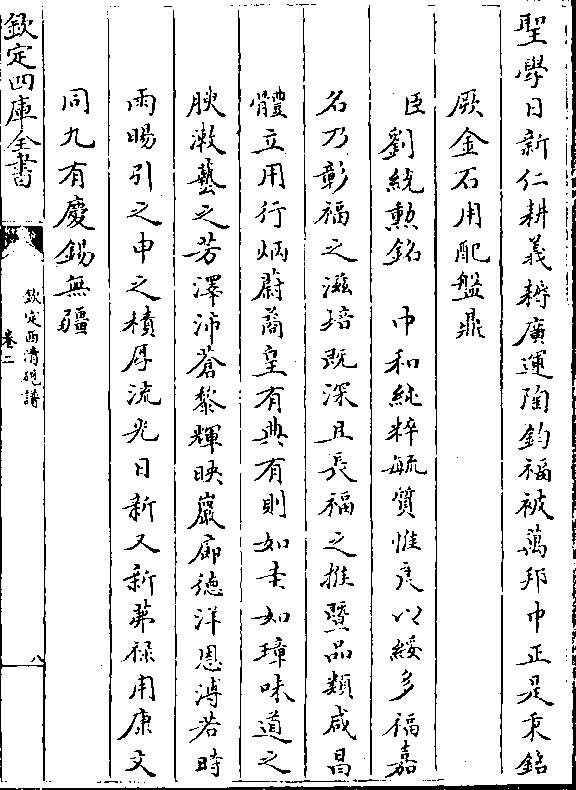 聖學日新仁耕義耨廣運陶鈞福被萬邦中正是秉銘
厥金石用配盤鼎
臣劉統勲銘　中和純粹毓質惟良以綏多福嘉
名乃彰福之滋培既深且長福之推暨品類咸昌
體立用行炳蔚啇皇有典有則如圭如璋味道之
腴潄藝之芳澤沛蒼黎輝映巖廊德洋恩溥若時
雨暘引之申之積厚流光日新又新茀祿用康文
同九有慶錫無疆
欽定四庫全書
欽定西清硯譜
卷二
八